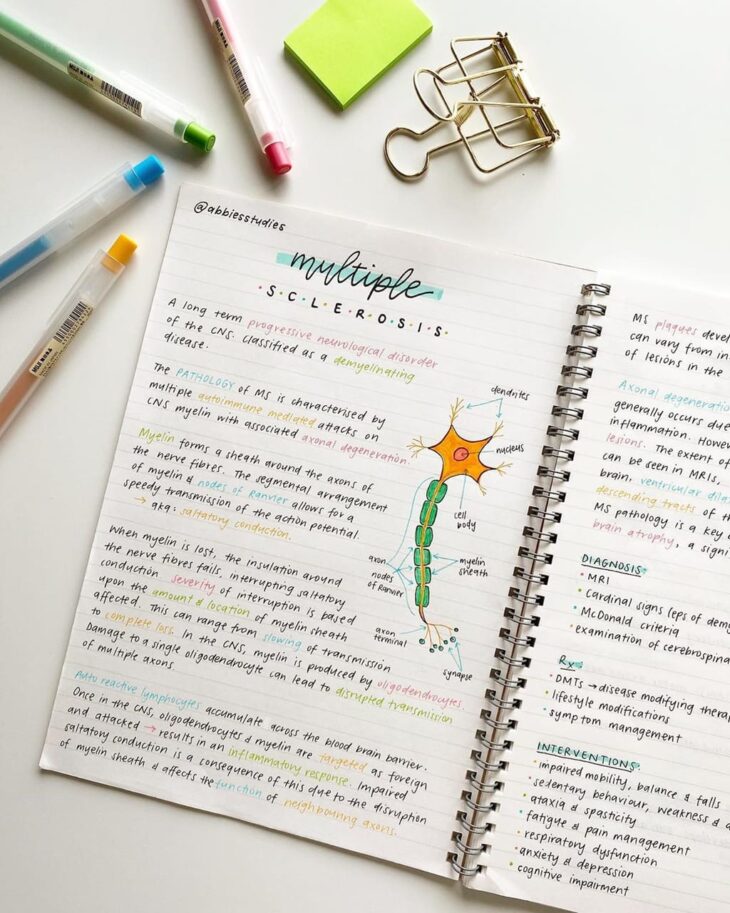 MUJI 0.5
MUJI 0.5
MUJI 0.5
@abbiesstudies
multiple
SCLEROSIS
A long term progressive neurological disorder
of the CNS. Classified as a demyelinating
disease.
The PATHOLOGY of MS is characterised by
multiple autoimmune mediated attacks on
CNS myelin with associated axonal degeneration.
Myelin forms a sheath around the axons of
the nerve fibres. The segmental arrangement
of myelin & nodes of Ranvier allows for a
speedy transmission of the action potential.
→ aka: saltatory conduction.
When myelin is lost, the insulation around
the nerve fibres fails, interrupting saltatory
conduction. Severity of interruption is based
upon the amount & location of myelin sheath
affected. This can range from slowing of transmission
to complete loss. In the CNS, myelin is produced by oligodendrocytes.
Damage to a single oligodendrocyte can lead to disrupted transmission
of multiple axons.
Auto reactive lymphocytes accumulate across the blood brain barrier.
Once in the CNS, oligodendrocytes & myelin are targeted as foreign
and attacked → results in an inflammatory response. Impaired
saltatory conduction is a consequence of this due to the disruption
of myelin sheath & affects the function of neighbouring axons.
dendrites
nucleus
cell
body
axon
nodes
of Ranvier
myelin
sheath
axon
terminal
synapse
MS plaques deve
can vary from in
of lesions in the
Axonal degeneratio
generally occurs due
inflammation. Howe
lesions. The extent of
can be seen in MRIs,
brain, ventricular dila
descending tracts of th
MS pathology is a key
brain atrophy, a signi
DIAGNOSIS:
• MRI
• cardinal signs (eps of demy
• McDonald criteria
• examination of cerebrospina
Rx
• DMTs → disease modifying thera
• lifestyle modifications
• symptom management
INTERVENTIONS:
• impaired mobility, balance & falls
• sedentary behaviour, weakness &
• ataxia & spasticity
• fatigue & pain management
• respiratory dysfunction
• anxiety & depression
• cognitive impairment